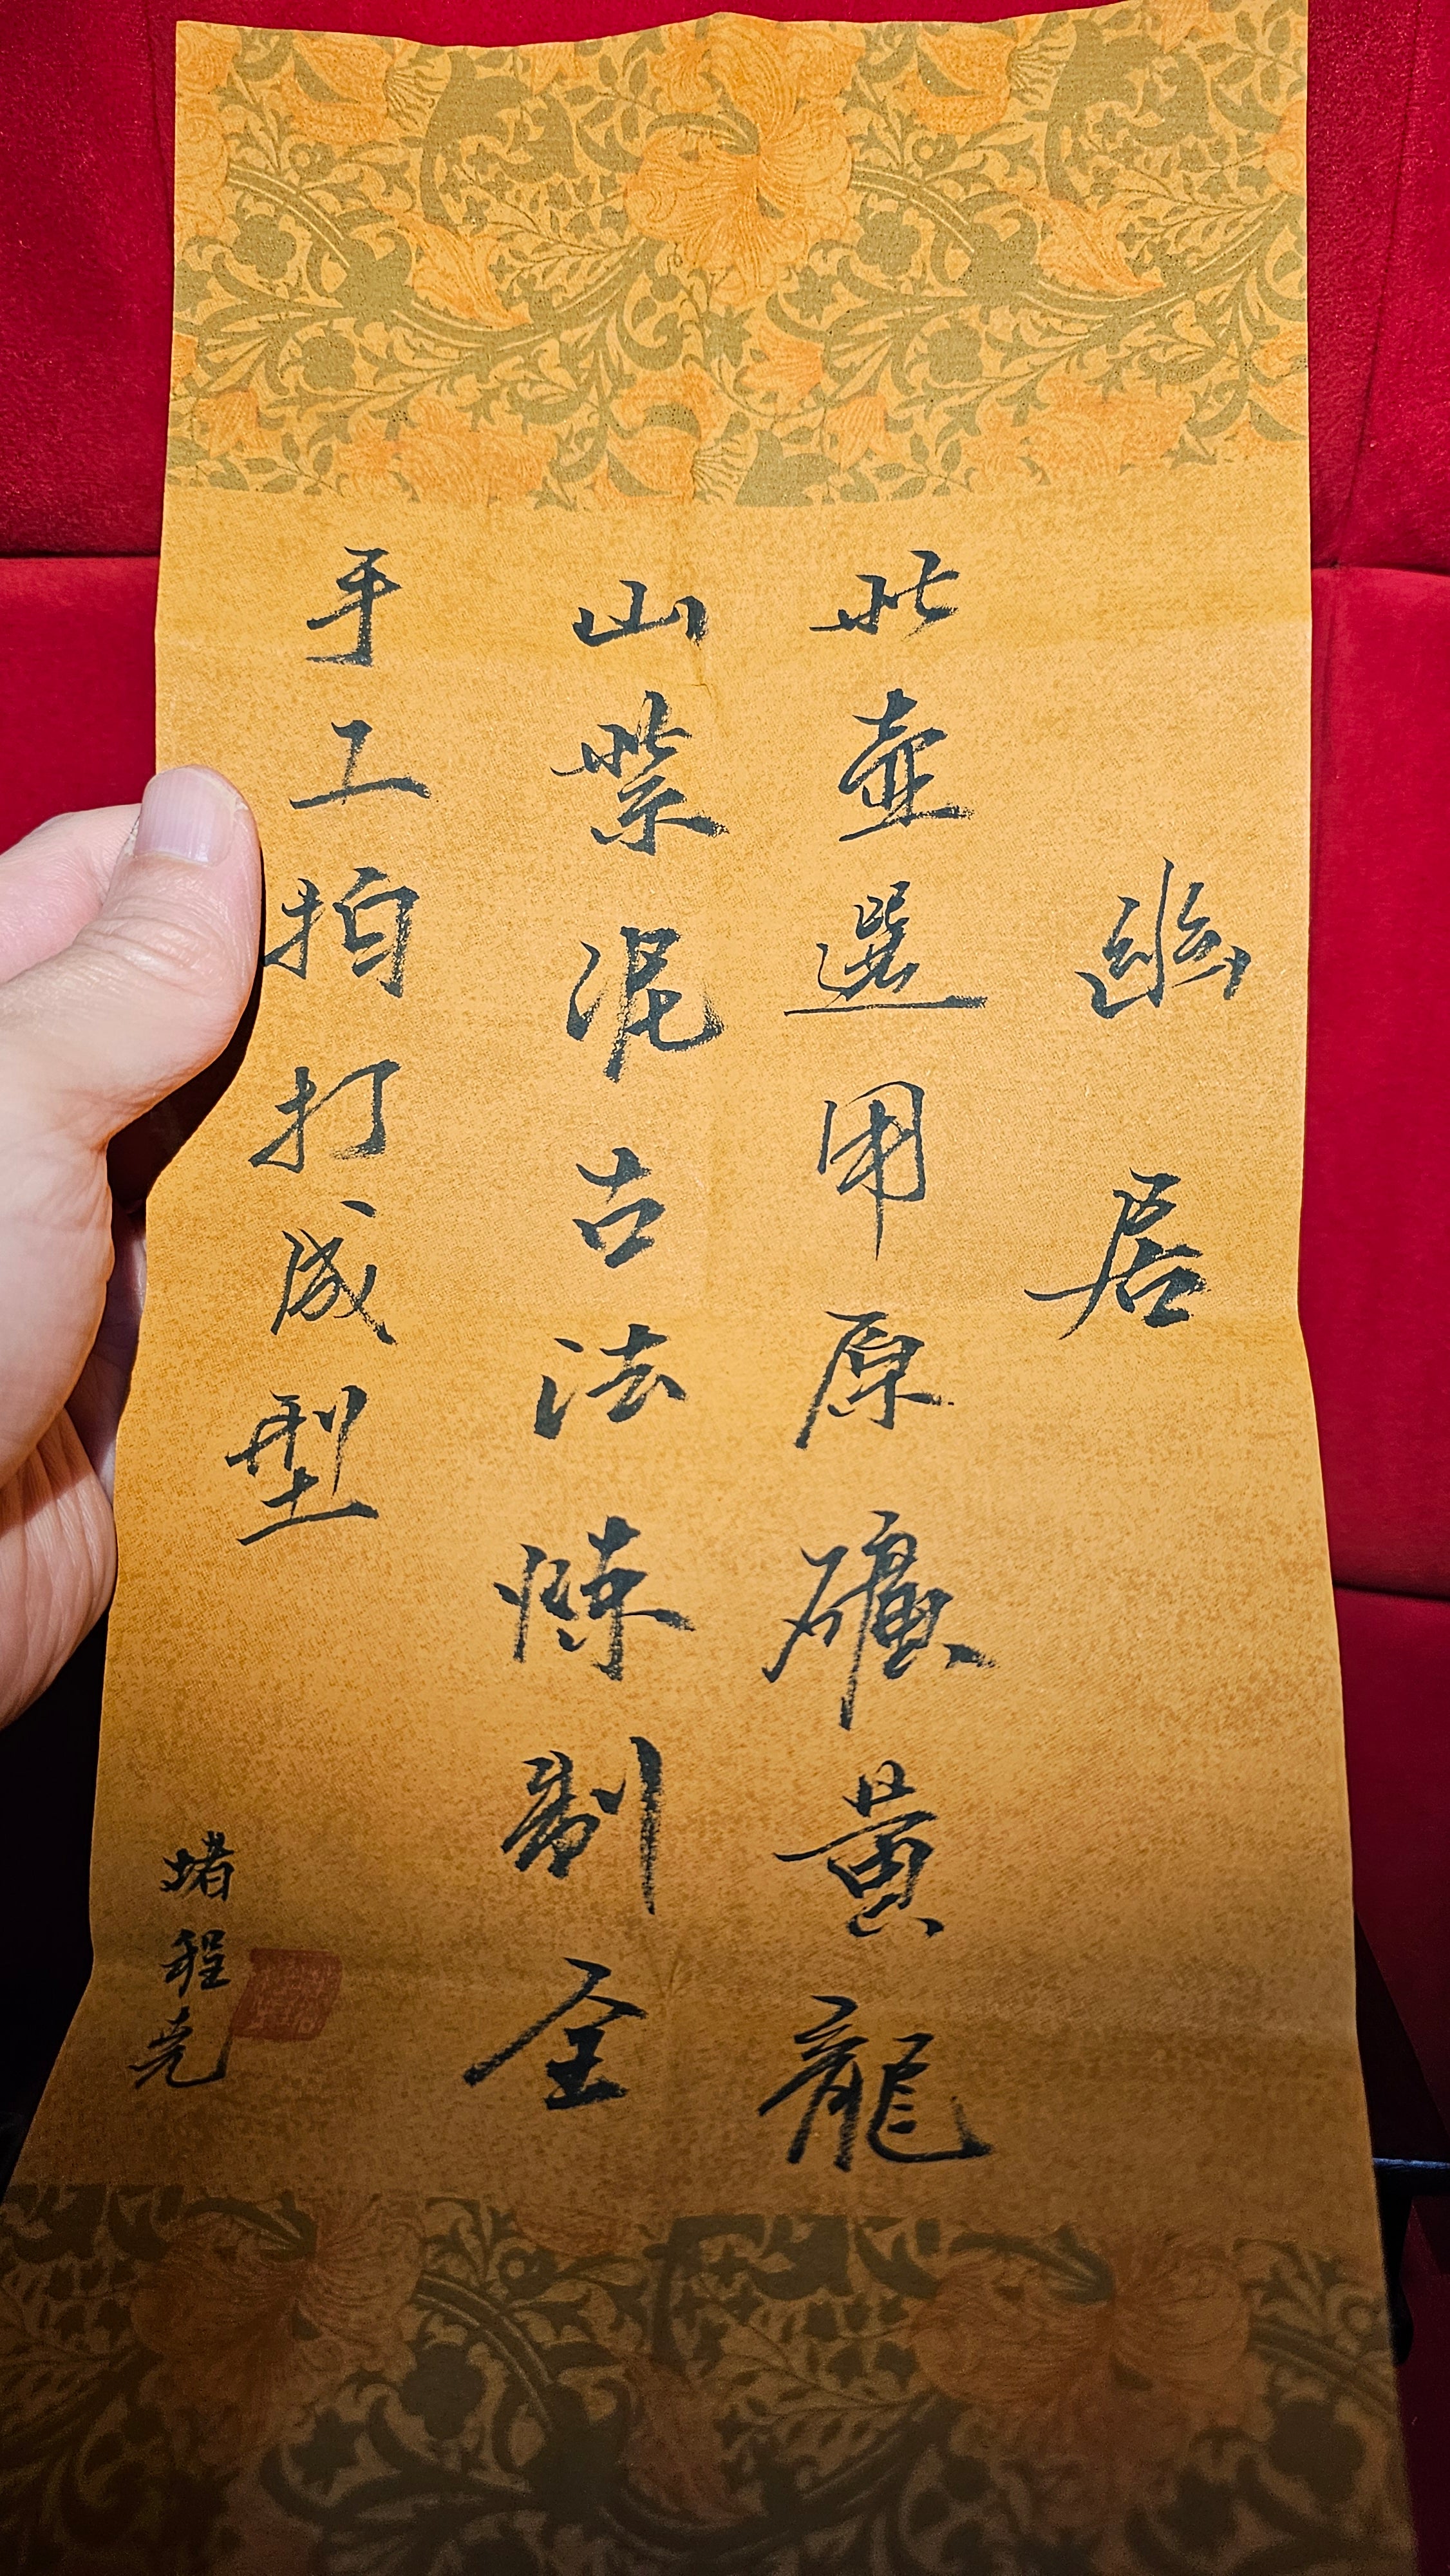 幽居
此壶選用原礦黃龍
山紫泥古法煉制全
手工拍打成型
堵程尧